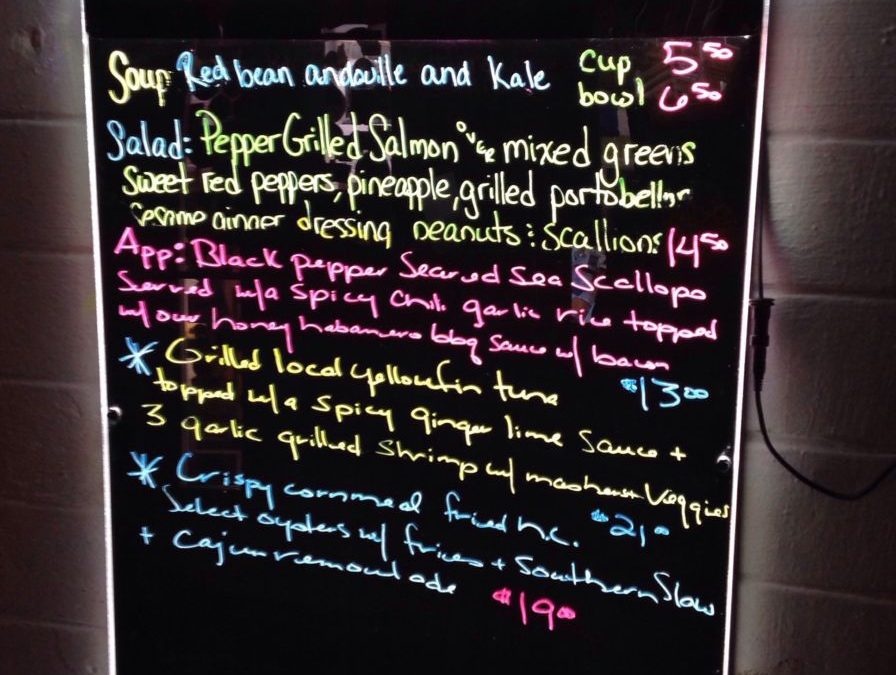 Soup Red bean andouille and Kale cup 5.50
bowl 6.50
Salad: Pepper Grilled Salmon over mixed greens
Sweet red peppers, pineapple, grilled portobello
Sesame ginner dressing peanuts : scallions 14.50
App: Black pepper Seared Sea Scallops
Served w/a Spicy Chili garlic rice topped
w/ our honey habanero bbq Sauce w/ bacon
* Grilled local yellowfin tuna $13.00
topped w/a Spicy ginger lime Sauce +
3 garlic grilled Shrimp w/ mashers + Veggies
* Crispy cornmeal fried n.c. $21.00
Select oysters w/ fries + Southern Slaw
+ cajun remoulade $19.00